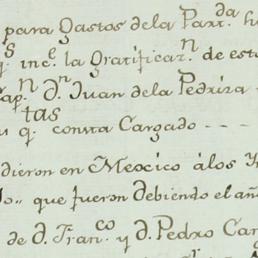 para Gastos dela Part.da h
q. inc.e la Gratificaz.n de est
Cap.n D.n Juan dela Pedriza
q. consta Cargado - - -
dieron en Mexico álos Y
que fueron debiendo el añ
de D. Fran.co y D. Pedro Car